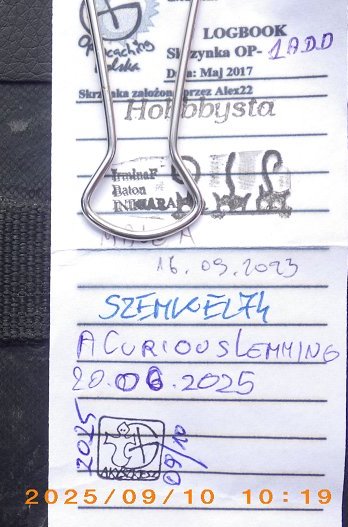 Opencaching
Polska
LOGBOOK
Skrzynka OP- 1ADD
Data: Maj 2017
Skrzynka założona przez Alex22
Hobbysta
IrminaF
Baton
16.09.2023
SZEMKEL74
A CURIOUS LEMMING
20.06.2025
2025
09/10
2025/09/10 10:19